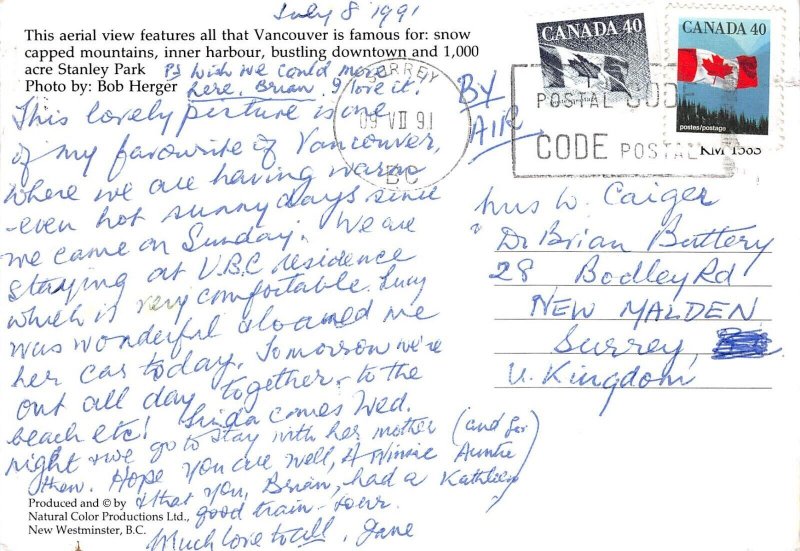 July 8 1991
This aerial view features all that Vancouver is famous for: snow
capped mountains, inner harbour, bustling downtown and 1,000
acre Stanley Park
Photo by: Bob Herger
PS Wish we could move
here, Brian, I love it!
This lovely picture is one
of my favourite of Vancouver,
where we are having warm
- even hot sunny days since
we came on Sunday. We are
staying at U.B.C residence
which is very comfortable. Lucy
was wonderful & loaned me
her car today. Tomorrow we're
out all day together - to the
beach etc! Linda comes Wed.
night & we go to stay with her mother (and for
then. Hope you are well, & Winnie Auntie
& that you, Brian, had a Kathleen)
good train - tour.
Much love to all, Jane
Produced and © by
Natural Color Productions Ltd.,
New Westminster, B.C.
BY
AIR
CANADA 40
CANADA 40
postes/postage
SURREY
09 VII 91
BC
POSTAL CODE
CODE POSTAL
KM 1583
Mrs W. Caiger
Dr Brian Buttery
28 Bodley Rd
NEW MALDEN
Surrey,
U. Kingdom